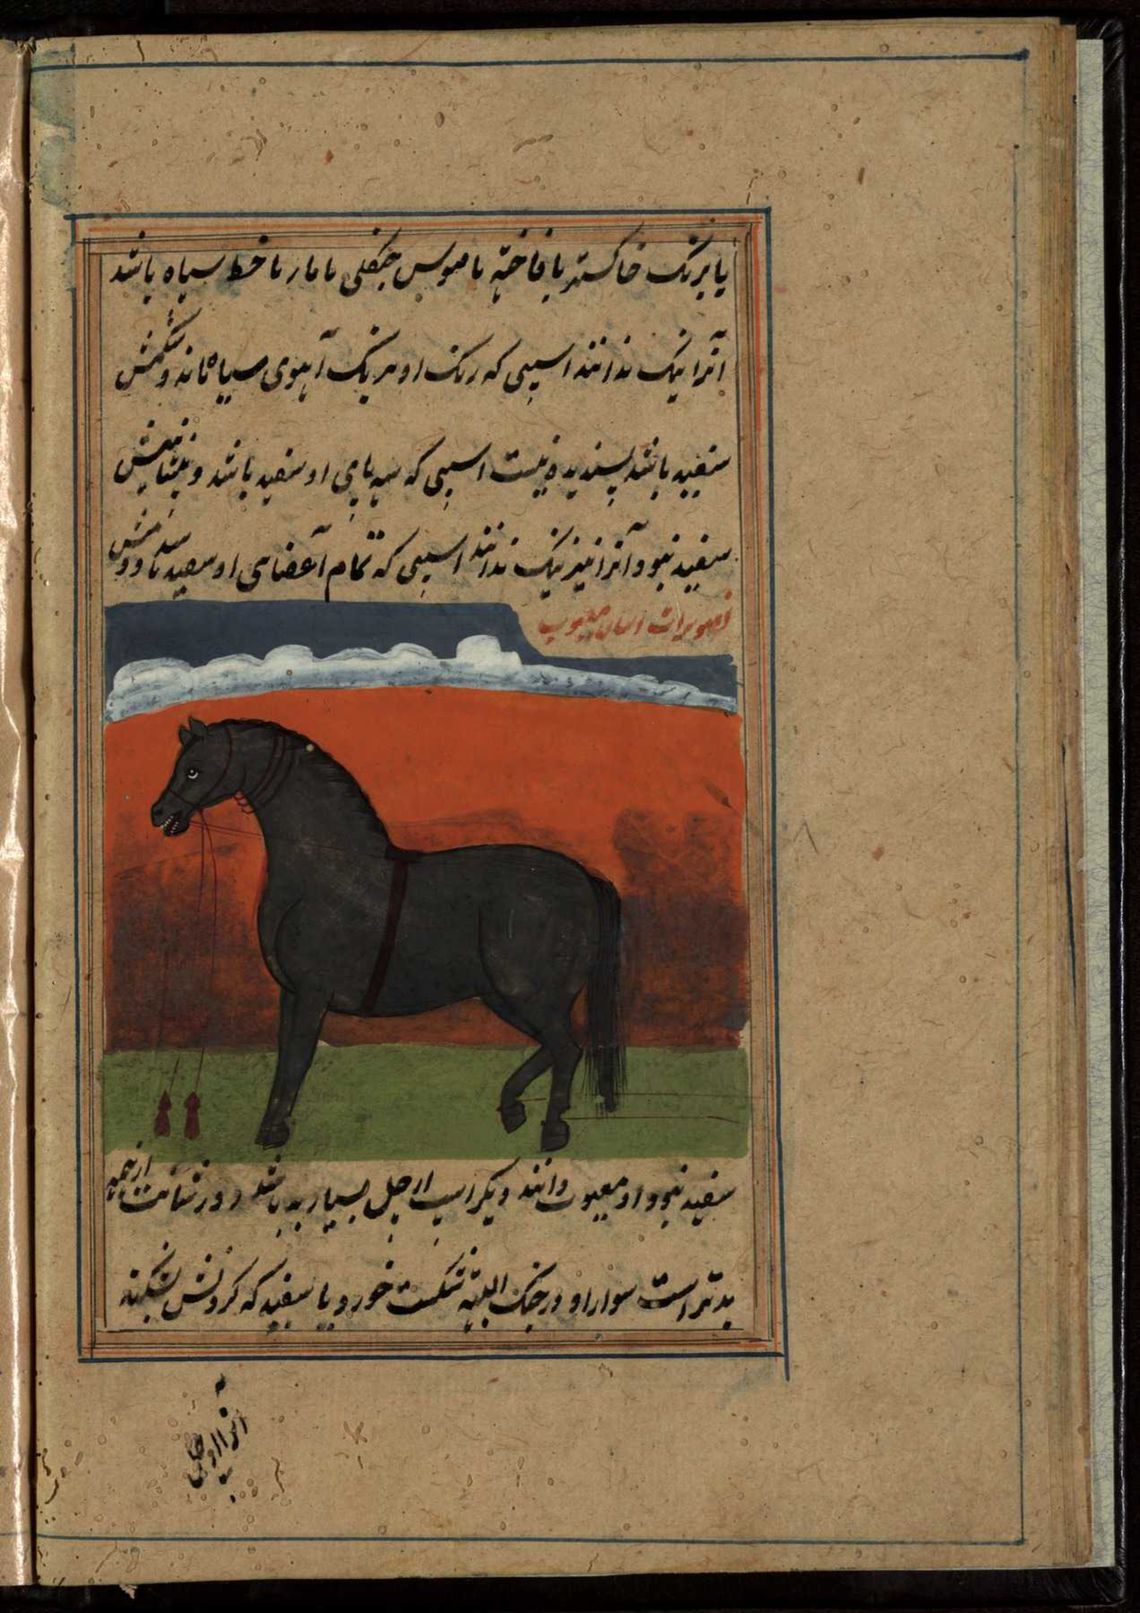 یا برنک خاکستر یا فاختہ یا موس جنکلی یا مار یا خط سیاه باشد
آنرا نیک ندانند اسپی که رنک او برنک آہوی سیاه ماند و شکمش
سفید باشد پسندیده نیست اسپی که سه پای او سفید باشد و پیشانیش
سفید نبود آنرا نیز نیک ندانند اسپی که تمام آعضای او سفید باشد و دمش
تصویرات اسپان معیوب
سفید نبود او معیوب دانند دیکر اسپ ارجل بسیار بد باشد از همه
بدتر است سوار او در جنک البته شکست خورد یا سفید که کردنش
آنرا او